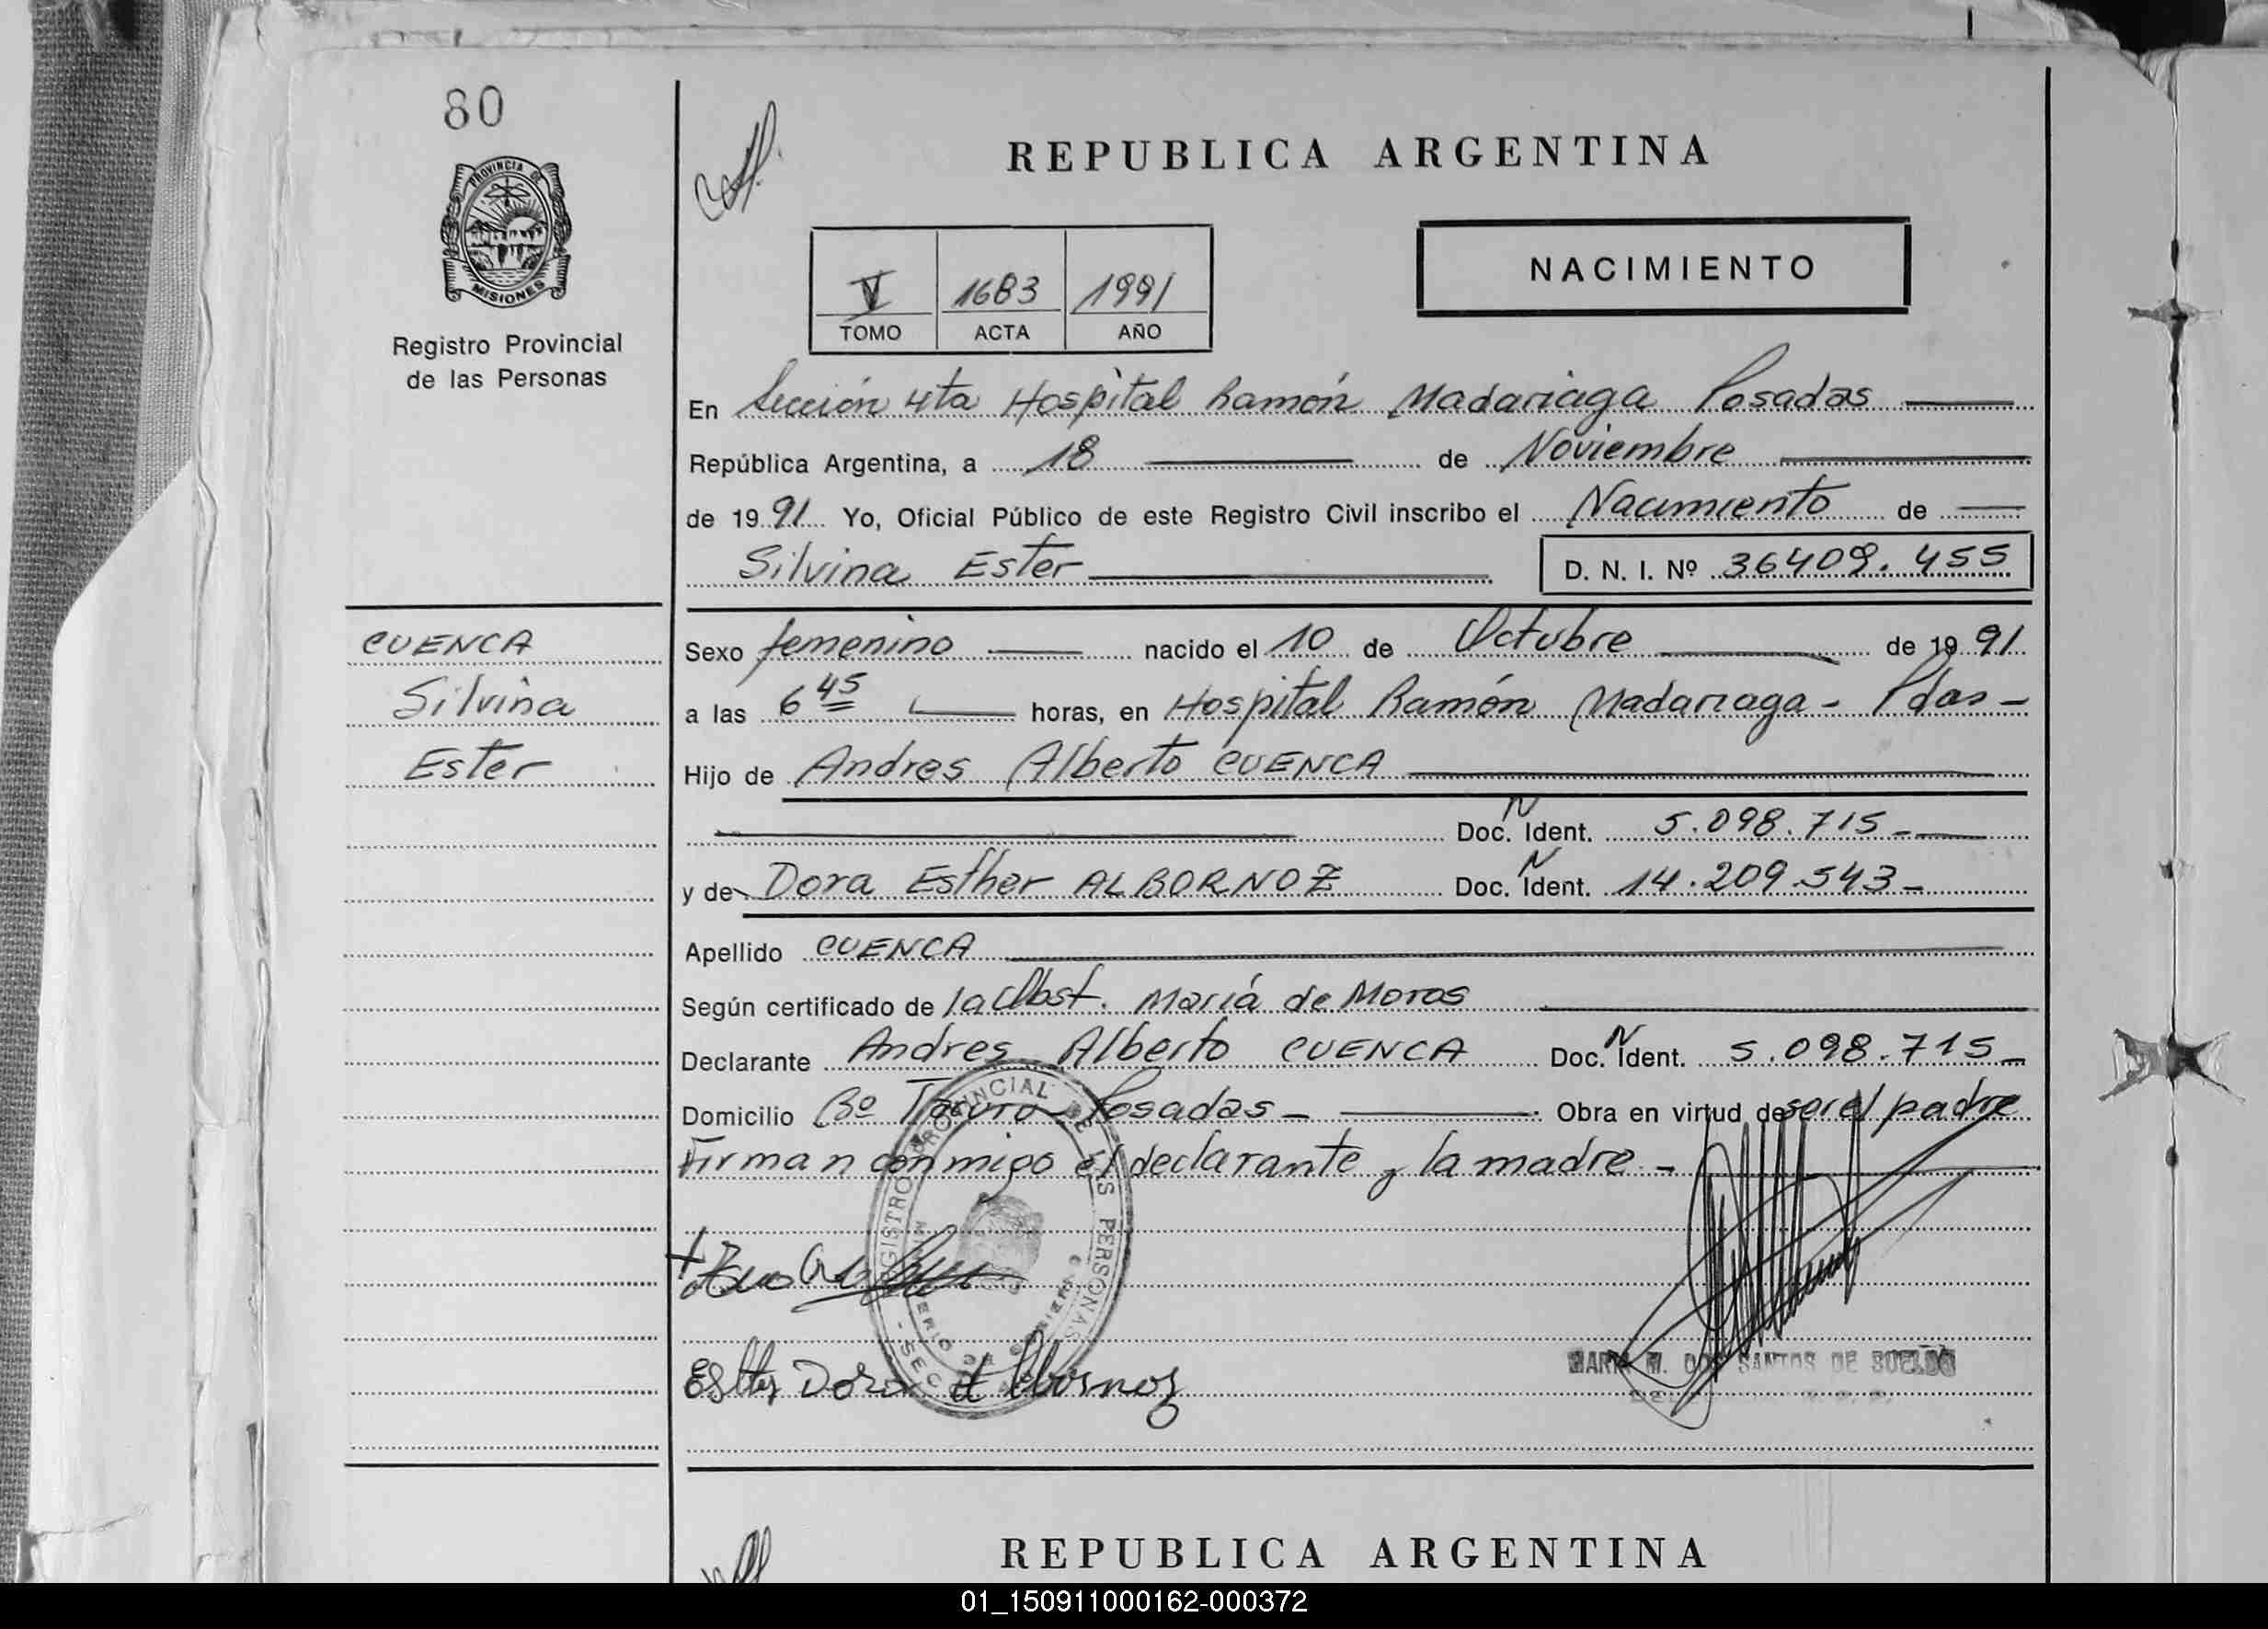 80
PROVINCIA DE
MISIONES
Registro Provincial
de las Personas
REPUBLICA ARGENTINA
V 1683 1991
TOMO ACTA AÑO
NACIMIENTO
En Sección 4ta Hospital Ramón Madariaga Posadas
República Argentina, a 18 de Noviembre
de 1991 Yo, Oficial Público de este Registro Civil inscribo el Nacimiento de
Silvina Ester D. N. I. Nº 36409.455
CUENCA
Silvina
Ester
Sexo femenino nacido el 10 de Octubre de 1991
a las 6 45 horas, en Hospital Ramón Madariaga - Pdas -
Hijo de Andres Alberto CUENCA
Doc. N Ident. 5.098.715-
y de Dora Esther ALBORNOZ Doc. N Ident. 14.209.543-
Apellido CUENCA
Según certificado de la Obst. María de Moras
Declarante Andres Alberto CUENCA Doc. N Ident. 5.098.715-
Domicilio Bº Posadas - Obra en virtud de ser el padre
Firman conmigo el declarante y la madre -
REGISTRO PROVINCIAL DE LAS PERSONAS
Esther Dora d Albornoz
MARIA M. DOS SANTOS DE SUELDO
REPUBLICA ARGENTINA
01_150911000162-000372